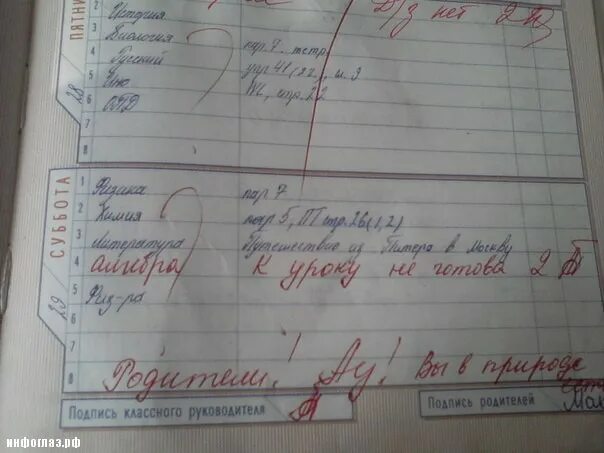 ПЯТНИ
28
2 История Д/з нет 2
3 Биология пар. 7. тетр.
4 Русский упр 41
5 Ино
6 ОПД №, стр. 22
7
8
СУББОТА
29
1 Физика пар 7
2 Химия пар 5, ПТ стр. 26 (1, 2)
3 Литература Путешествие из Питера в Москву
4 алгебра К уроку не готова 2
5 Физ-ра
6
7
8 Родители! Ау! Вы в природе
Подпись классного руководителя
Подпись родителей
инфоглаз.рф